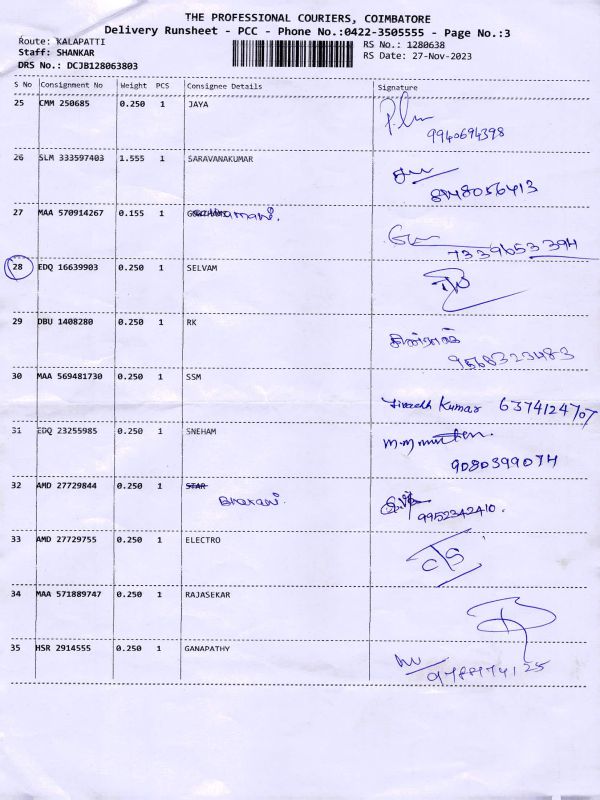 THE PROFESSIONAL COURIERS, COIMBATORE
Delivery Runsheet - PCC - Phone No.:0422-3505555 - Page No.:3
Route: KALAPATTI
RS No.: 1280638
Staff: SHANKAR
RS Date: 27-Nov-2023
DRS No.: DCJB128063803
S No Consignment No Weight PCS Consignee Details Signature
25 CMM 250685 0.250 1 JAYA
9940694398
26 SLM 333597403 1.555 1 SARAVANAKUMAR
8948056413
27 MAA 570914267 0.155 1
7339653394
28 EDQ 16639903 0.250 1 SELVAM
29 DBU 1408280 0.250 1 RK
9568323483
30 MAA 569481730 0.250 1 SSM
Kumar 6374124707
31 EDQ 23255985 0.250 1 SNEHAM
9080399074
32 AMD 27729844 0.250 1 STAR
Bharani.
9952342410.
33 AMD 27729755 0.250 1 ELECTRO
34 MAA 571889747 0.250 1 RAJASEKAR
35 HSR 2914555 0.250 1 GANAPATHY